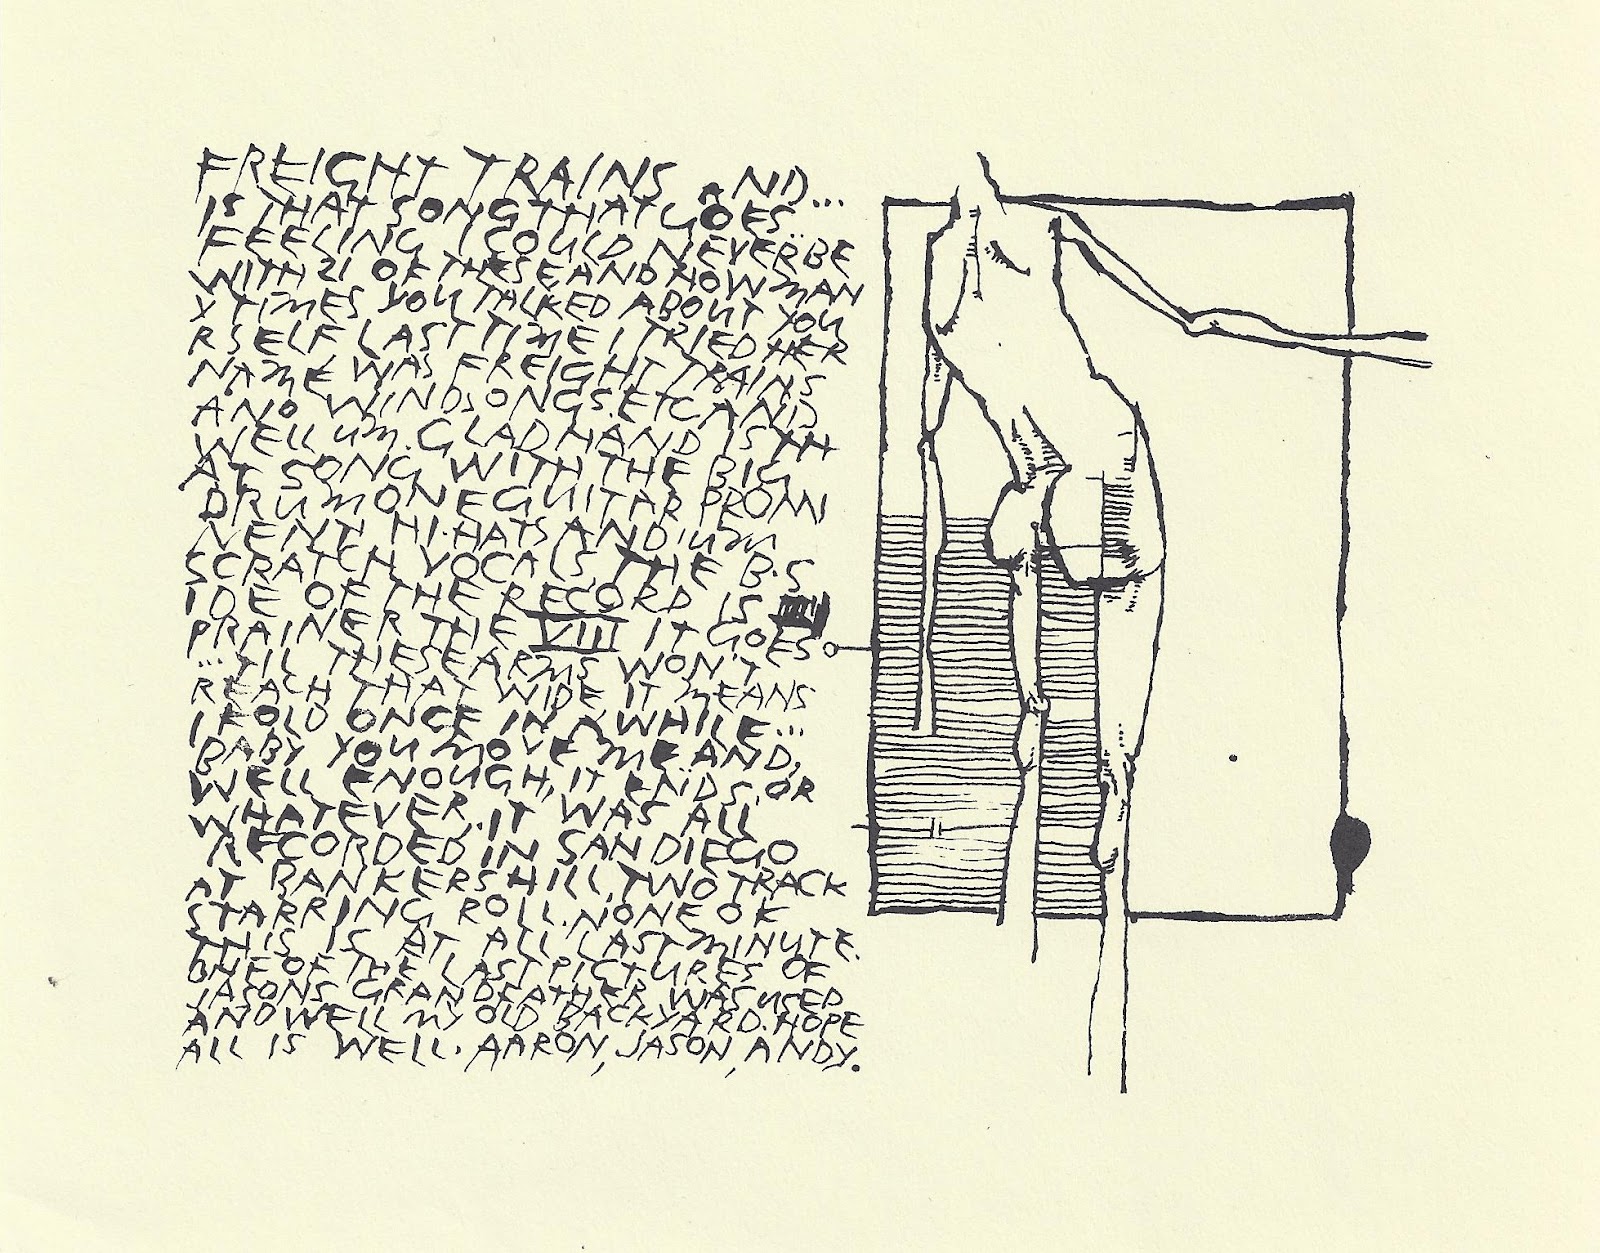 FREIGHT TRAINS AND...
IS THAT SONG THAT GOES
FEELING I COULD NEVER BE
WITH 21 OF THESE AND HOW MAN
Y TIMES YOU TALKED ABOUT YOU
RSELF LAST TIME I TRIED HER
NAME WAS FREIGHT TRAINS
AND WINDSONGS.ETC AND
WELL UM. GLADHAND IS TH
AT SONG WITH THE BIG
DRUM ONE GUITAR PROMI
NENT HI.HATS AND UM
SCRATCH VOCALS THE B.S
IDE OF THE RECORD IS
PRAINER THE VIII IT GOES
...TILL THESE ARMS WON'T
REACH THAT WIDE IT MEANS
I FOLD ONCE IN A WHILE...
BABY YOU MOVE ME AND,
WELL ENOUGH, IT ENDS OR
WHATEVER. IT WAS ALL
RECORDED IN SAN DIEGO
AT BANKERS HILL, TWO TRACK
STARRING ROLL. NONE OF
THIS IS AT ALL LAST MINUTE.
ONE OF THE LAST PICTURES OF
JASONS GRANDFATHER WAS USED
AND WELL MY OLD BACKYARD. HOPE
ALL IS WELL. AARON, JASON, ANDY.